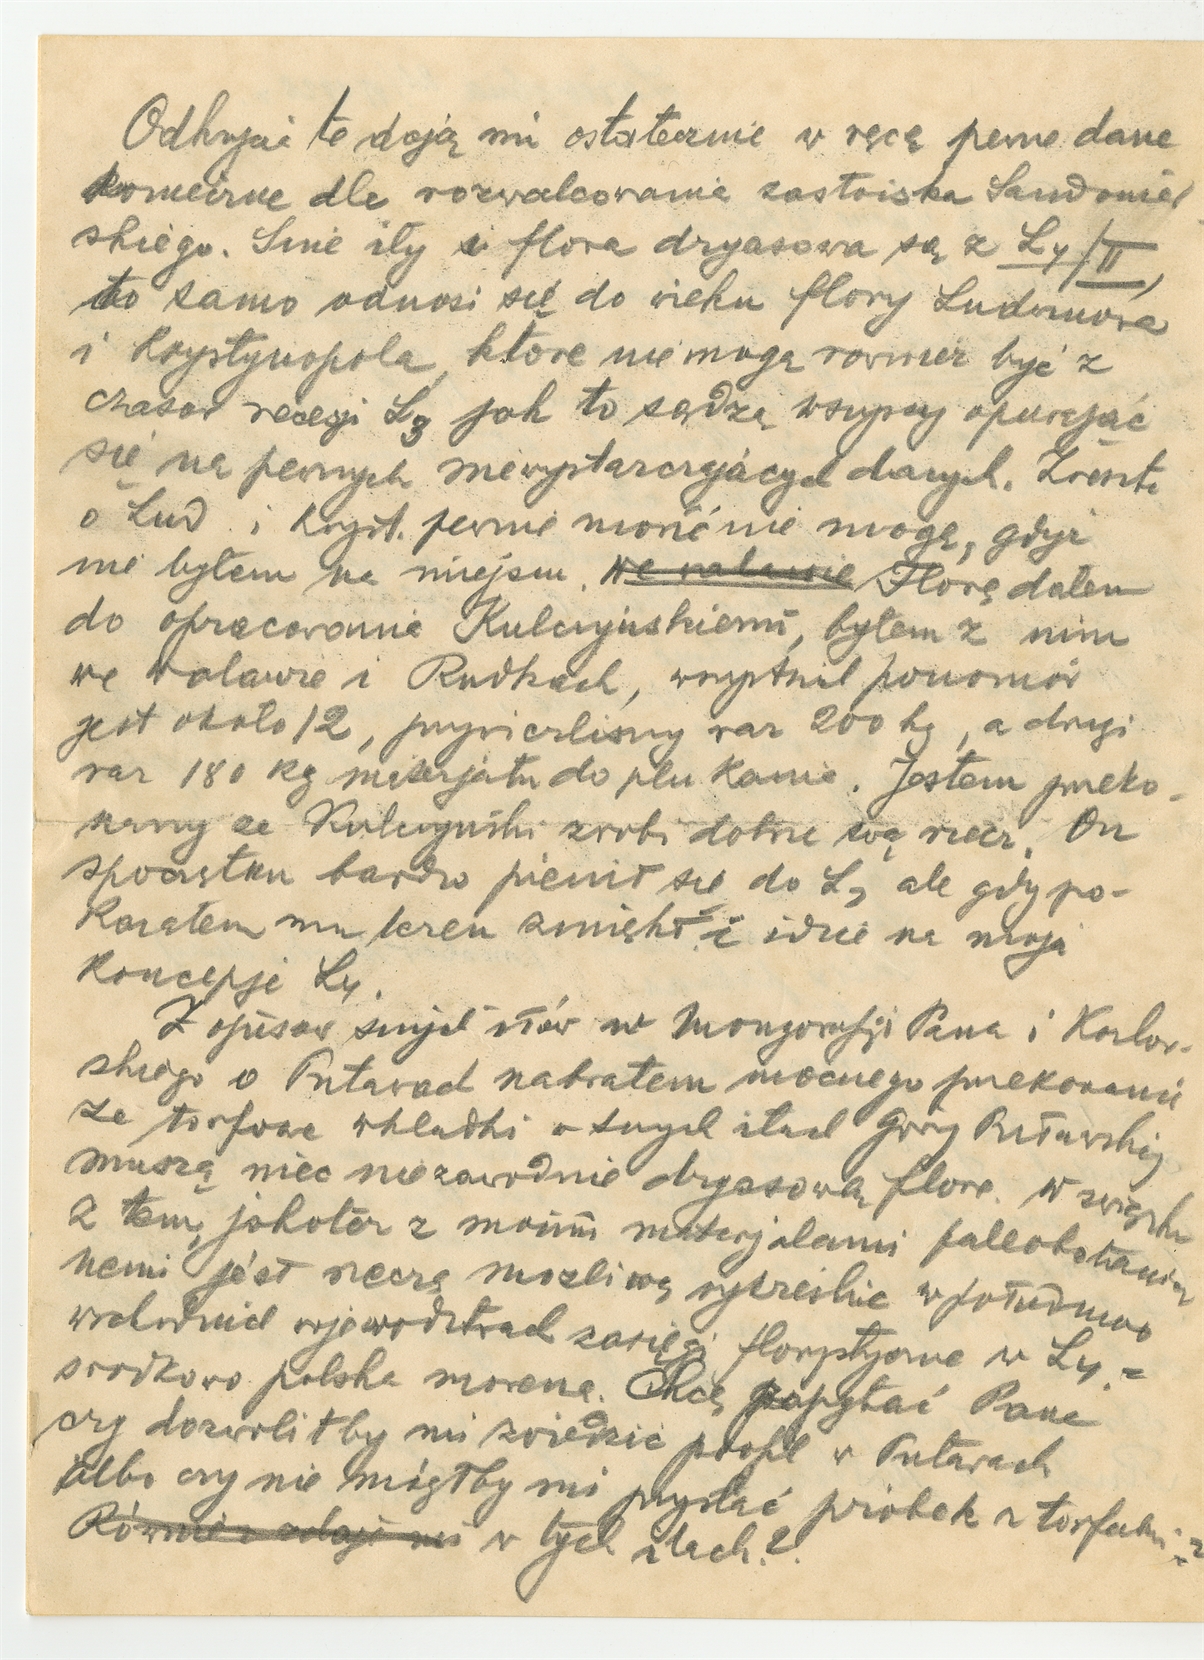 Odkrycie te dają mi ostatecznie w ręcę pewne dane
konieczne dla rozwalcowania zastoiska Sandomier
skiego. Sine iły i flora dryasowa są z L4/II,
to samo odnosi się do wieku flory Ludwinowa
i Krystynopola, które nie mogą rownież być z
czasow recesji L3 jak to sądzą wszyscy opierając
się na pewnych niewystarczających danych. Zresztą
o Lud. i Kryst. pewnie mówić nie mogę, gdyż
nie byłem na miejscu. We walawie Florę dałem
do opracowania Kulczyńskiemu, byłem z nim
we Walawie i Rudkach,
jest około 12, przywieźliśmy raz 200 kg, a drugi
raz 180 kg materjału do płukania. Jestem przeko-
nany ze Kulczyński zrobi dobrze swą rzecz. On
spoczątku bardzo pienił się do L4 ale gdy po-
kazałem mu teren zmiękł i idzie na moja
koncepsje L4.
Z opisow sinych iłów w Monografji Pana i Kozłow-
skiego o Puławach nabrałem mocnego przekonania
że torfowe wkładki w sinych iłach Góry Puławskiej
muszą miec niezawodnie dryasową florę. W związku
z tem, jakoteż z moimi materjalami paleobotanicz
nemi jest rzeczą mozliwą wykreslić w południowo
wschodnich wojewodztwach zasięgi florystyczne w L4 =
srodkowo polska morena. Chcę zapytać Pana
czy dozwolił by mi zwiedzic profil w Puławach
albo czy nie mógłby mi przysłać próbek z torfu
Również zdaje mi w tych iłach?.